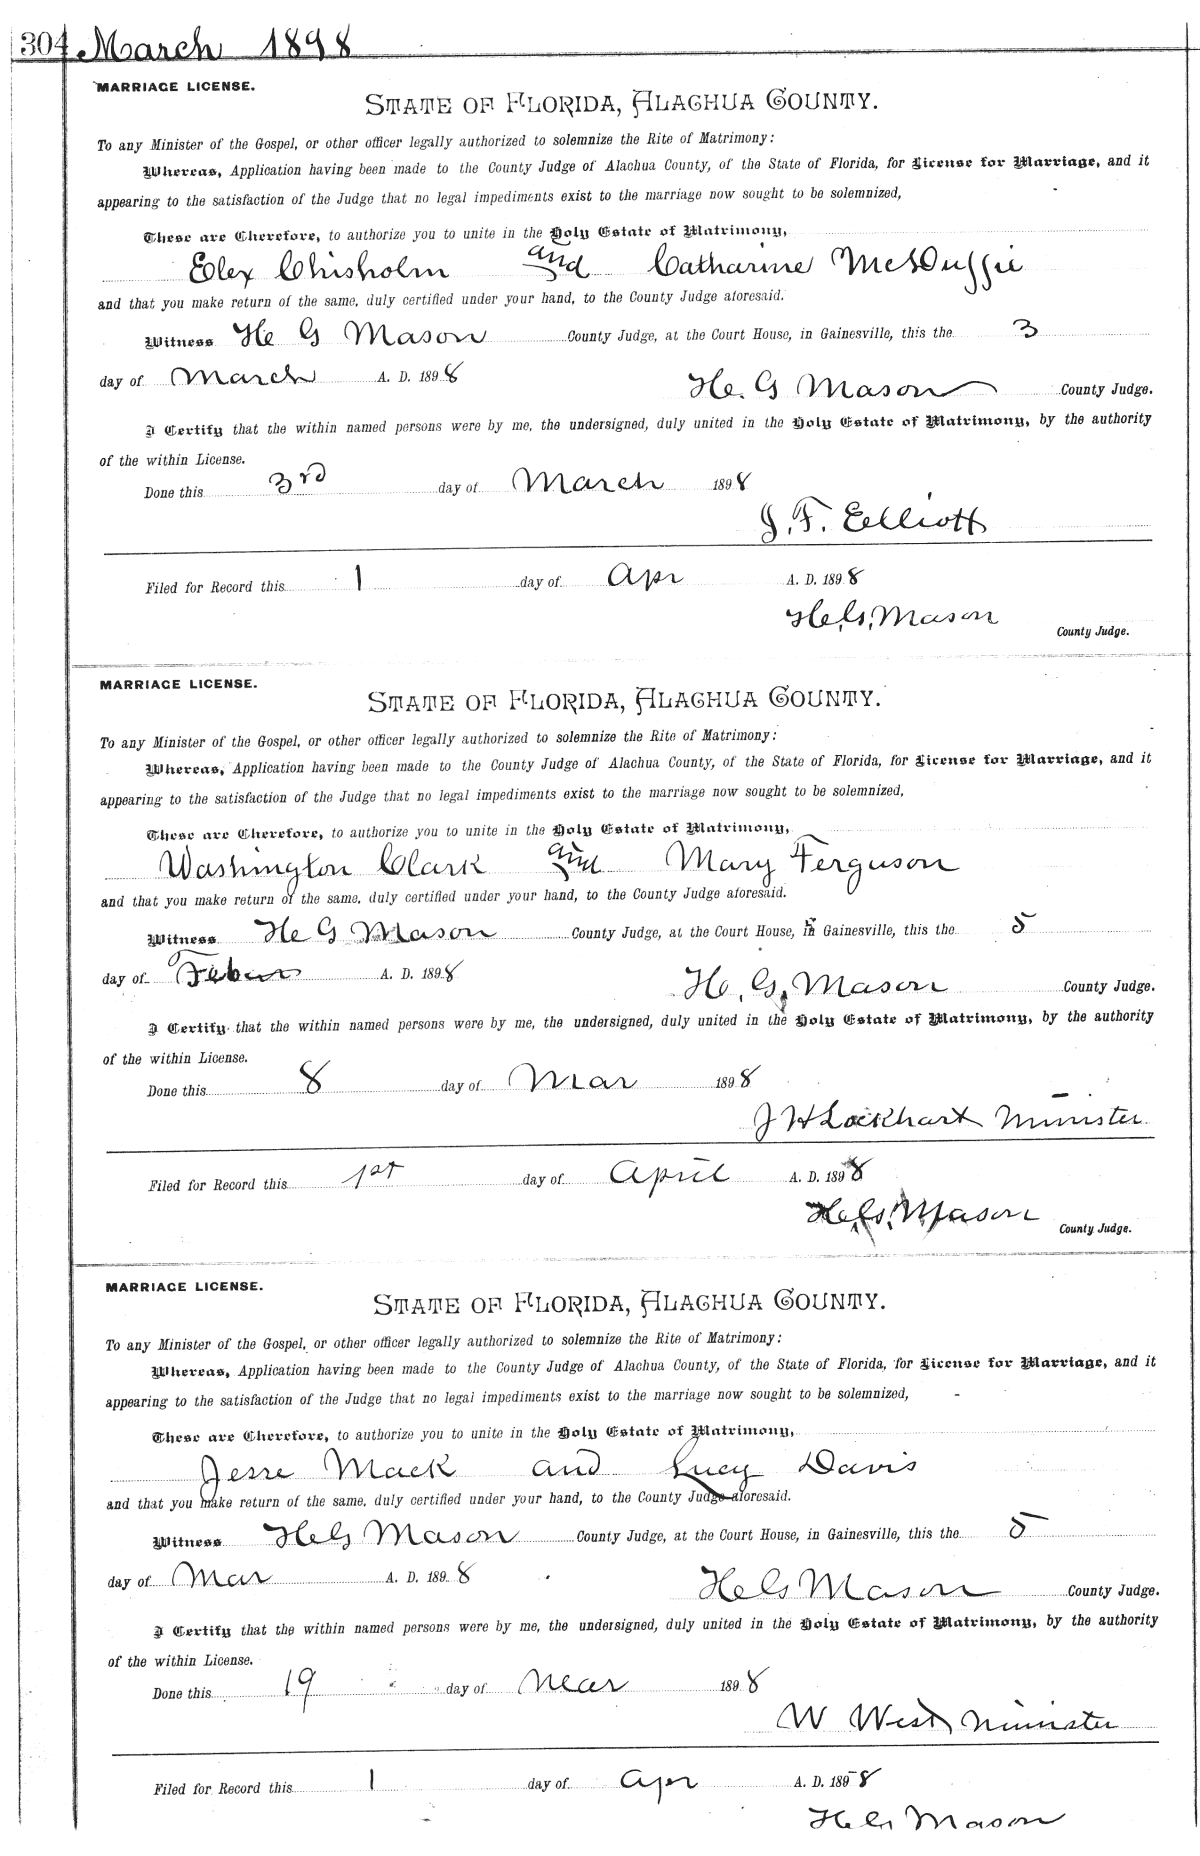 304 March 1898
MARRIAGE LICENSE.
STATE OF FLORIDA, ALACHUA COUNTY.
To any Minister of the Gospel, or other officer legally authorized to solemnize the Rite of Matrimony:
Whereas, Application having been made to the County Judge of Alachua County, of the State of Florida, for License for Marriage, and it
appearing to the satisfaction of the Judge that no legal impediments exist to the marriage now sought to be solemnized,
These are Therefore, to authorize you to unite in the Holy Estate of Matrimony,
Elex Chisholm and Catharine McDuffie
and that you make return of the same, duly certified under your hand, to the County Judge aforesaid.
Witness H G Mason County Judge, at the Court House, in Gainesville, this the 3
day of March A. D. 1898
H. G Mason County Judge.
I Certify that the within named persons were by me, the undersigned, duly united in the Holy Estate of Matrimony, by the authority
of the within License.
Done this 3rd day of March 1898
J. F. Elliott
Filed for Record this 1 day of Apr A. D. 1898
H. G. Mason
County Judge.
MARRIAGE LICENSE.
STATE OF FLORIDA, ALACHUA COUNTY.
To any Minister of the Gospel, or other officer legally authorized to solemnize the Rite of Matrimony:
Whereas, Application having been made to the County Judge of Alachua County, of the State of Florida, for License for Marriage, and it
appearing to the satisfaction of the Judge that no legal impediments exist to the marriage now sought to be solemnized,
These are Therefore, to authorize you to unite in the Holy Estate of Matrimony,
Washington Clark and Mary Ferguson
and that you make return of the same, duly certified under your hand, to the County Judge aforesaid.
Witness H G Mason County Judge, at the Court House, in Gainesville, this the 5
day of A. D. 1898
H. G. Mason County Judge.
I Certify that the within named persons were by me, the undersigned, duly united in the Holy Estate of Matrimony, by the authority
of the within License.
Done this 8 day of Mar 1898
J H Lockhart Minister
Filed for Record this 1st day of April A. D. 1898
H. G. Mason
County Judge.
MARRIAGE LICENSE.
STATE OF FLORIDA, ALACHUA COUNTY.
To any Minister of the Gospel, or other officer legally authorized to solemnize the Rite of Matrimony:
Whereas, Application having been made to the County Judge of Alachua County, of the State of Florida, for License for Marriage, and it
appearing to the satisfaction of the Judge that no legal impediments exist to the marriage now sought to be solemnized,
These are Therefore, to authorize you to unite in the Holy Estate of Matrimony,
Jesse Mack and Lucy Davis
and that you make return of the same, duly certified under your hand, to the County Judge aforesaid.
Witness H G Mason County Judge, at the Court House, in Gainesville, this the 5
day of Mar A. D. 1898
H G Mason County Judge.
I Certify that the within named persons were by me, the undersigned, duly united in the Holy Estate of Matrimony, by the authority
of the within License.
Done this 19 day of Mar 1898
W West Minister
Filed for Record this 1 day of Apr A. D. 1898
H G Mason